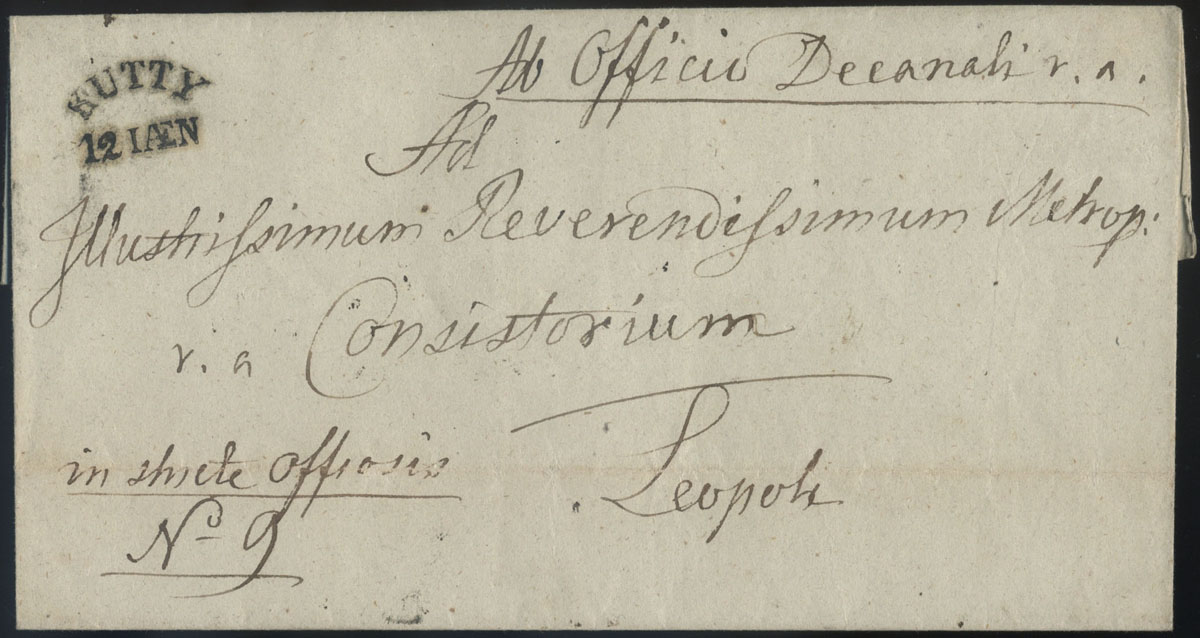 KUTTY
12 IÆN
Ab Officio Decanali r. a.
Ad
Illustrissimum Reverendissimum Metrop:
r. a Consistorium
Leopoli
in stricte officosis
No 9